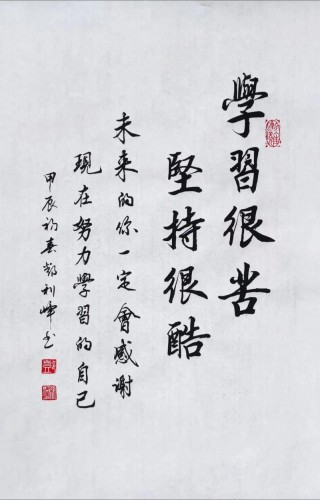 學習很苦
堅持很酷
未来的你一定會感谢
現在努力學習的自己
甲辰初春鄭利峰书